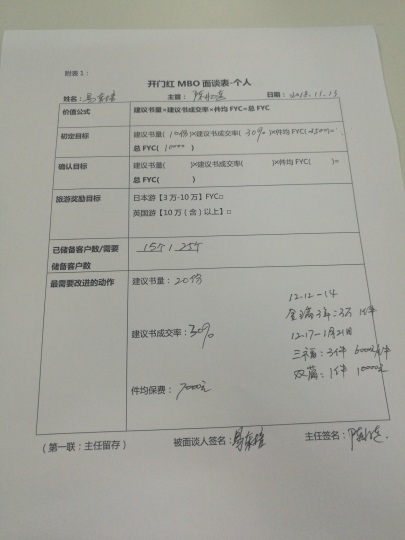 附表1：
开门红 MBO 面谈表-个人
姓名： 主管： 日期：2018.11.15
价值公式 建议书量×建议书成交率×件均 FYC=总 FYC
初定目标 建议书量（10份）×建议书成交率（30%）×件均 FYC（3500）=
总 FYC（10000）
确认目标 建议书量（ ）×建议书成交率（ ）×件均 FYC（ ）=
总 FYC（ ）
旅游奖励目标 日本游【3万-10万】FYC□
英国游【10万（含）以上】□
已储备客户数/需要 15个/25个
储备客户数
最需要改进的动作 建议书量：20份
12.12-14
3年:3万 1件
建议书成交率：30% 12.17-1月21日
三福：3件 6000元/件
双福：1件 10000元
件均保费：7000元
（第一联：主任留存） 被面谈人签名： 主任签名：